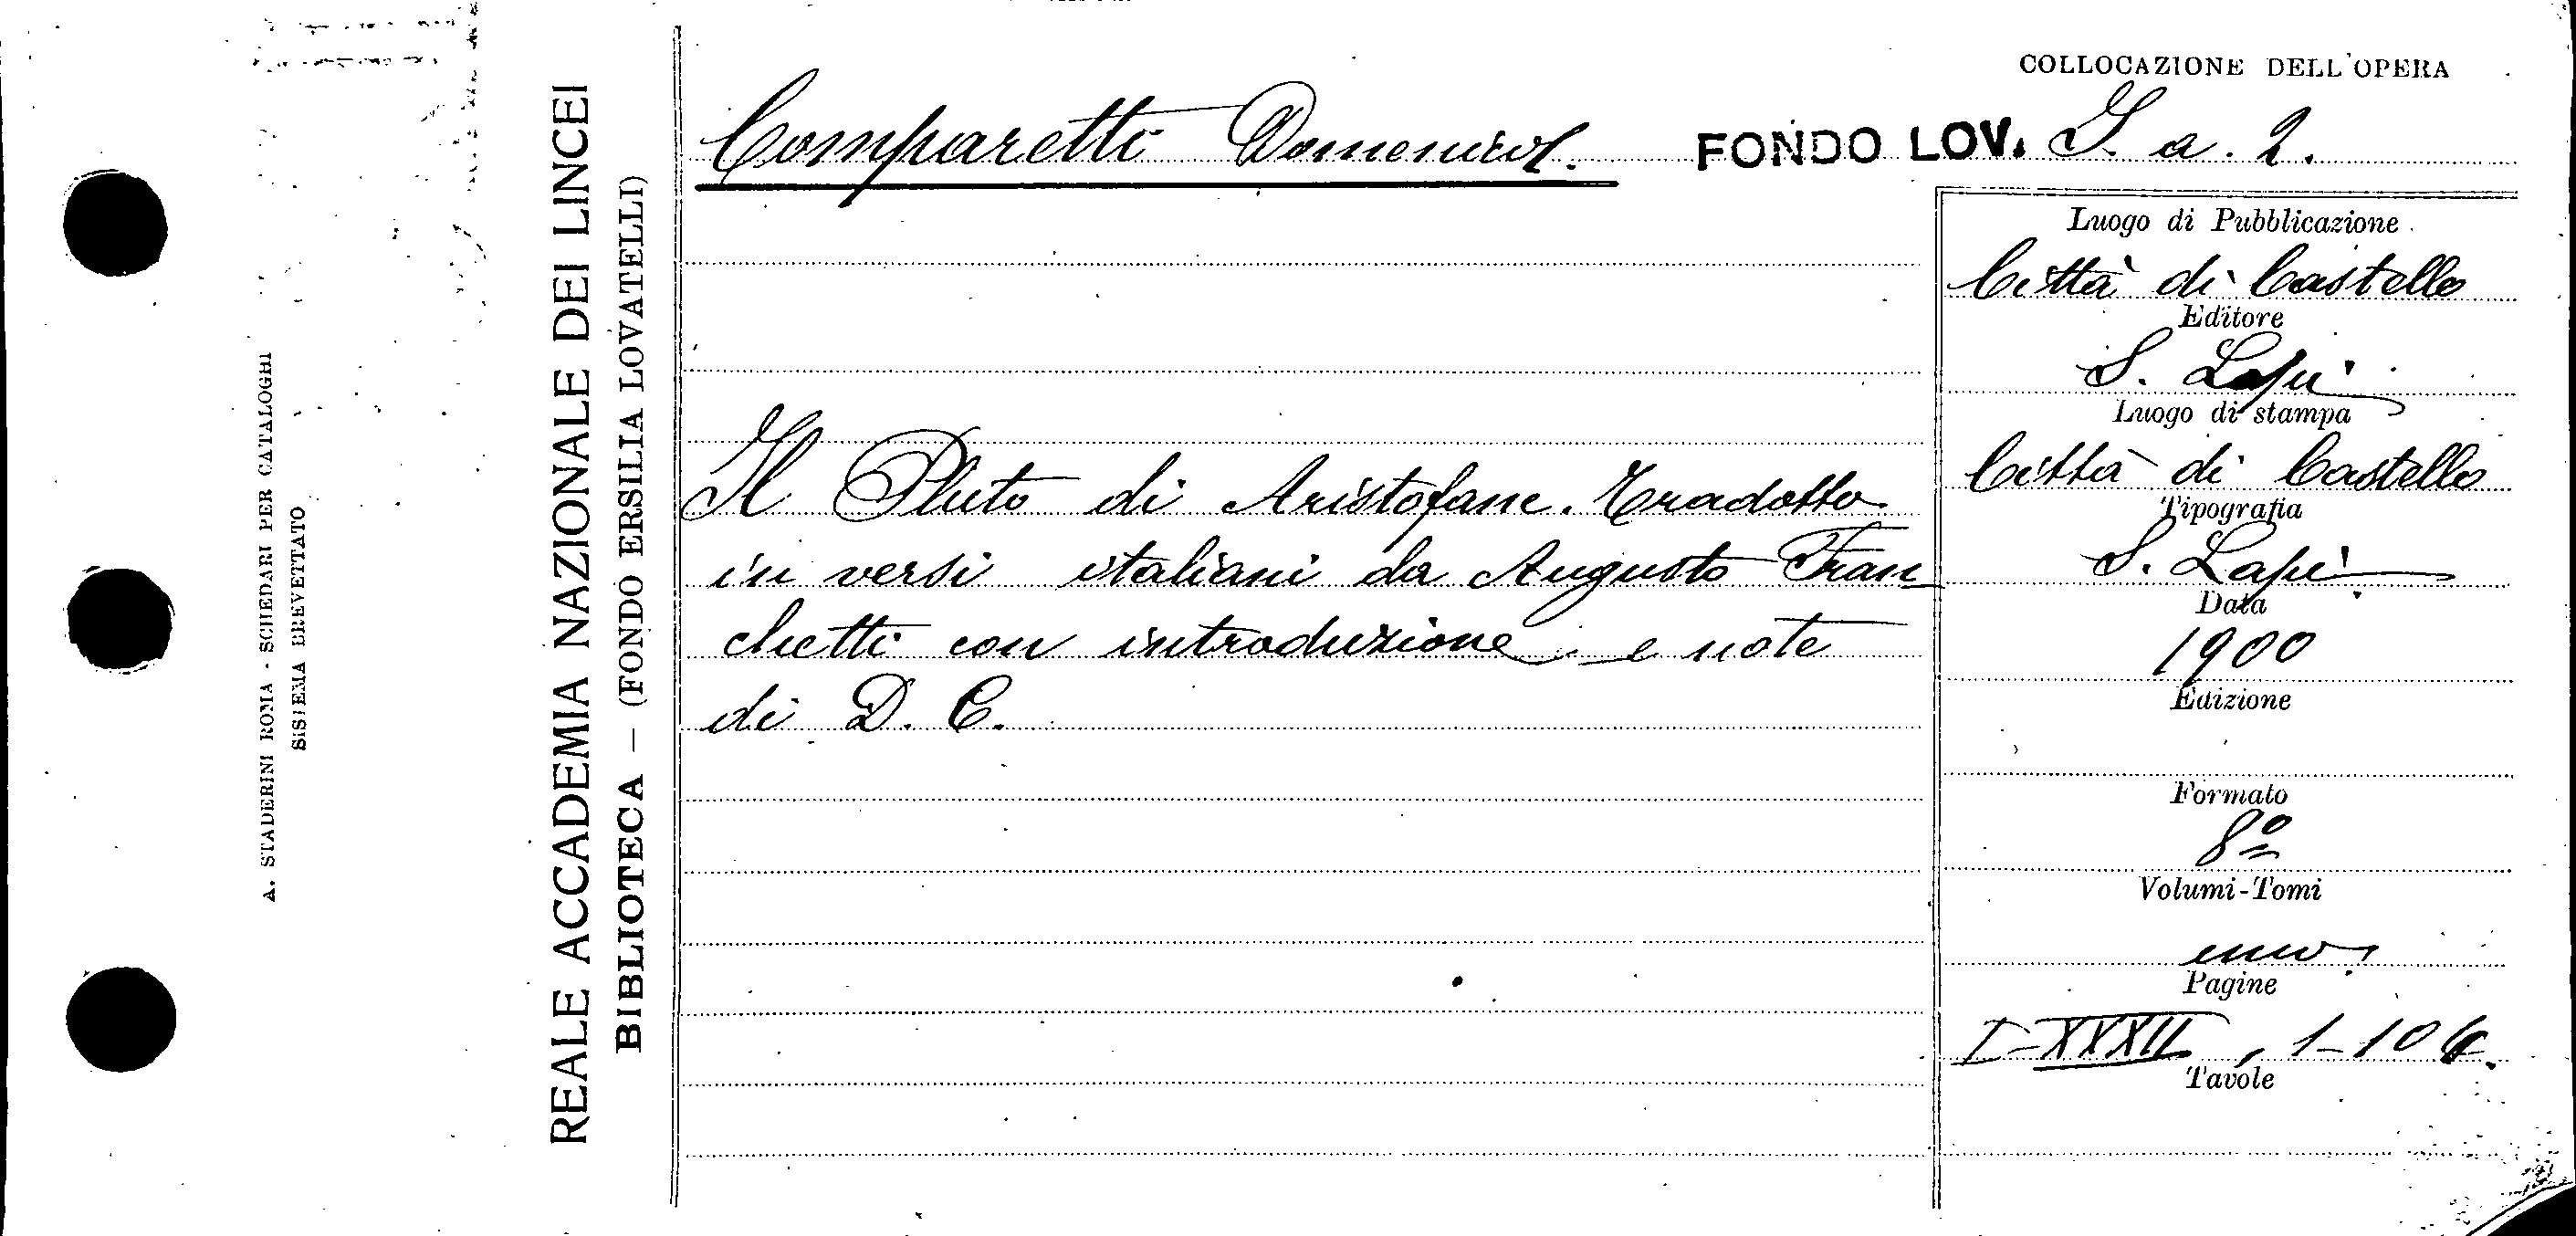 COLLOCAZIONE DELL'OPERA
Comparetti Domenico.
FONDO LOV. I. a. 2.
Il Pluto di Aristofane. Tradotto
in versi italiani da Augusto Fran
chetti con introduzione e note
di D. C.
Luogo di Pubblicazione
Città di Castello
Editore
S. Lapi
Luogo di stampa
Città di Castello
Tipografia
S. Lapi
Data
1900
Edizione
Formato
8º
Volumi-Tomi
uno
Pagine
I-XXXII, 1-106.
Tavole
REALE ACCADEMIA NAZIONALE DEI LINCEI
BIBLIOTECA — (FONDO ERSILIA LOVATELLI)
A. STADERINI ROMA - SCHEDARI PER CATALOGHI
SISTEMA BREVETTATO